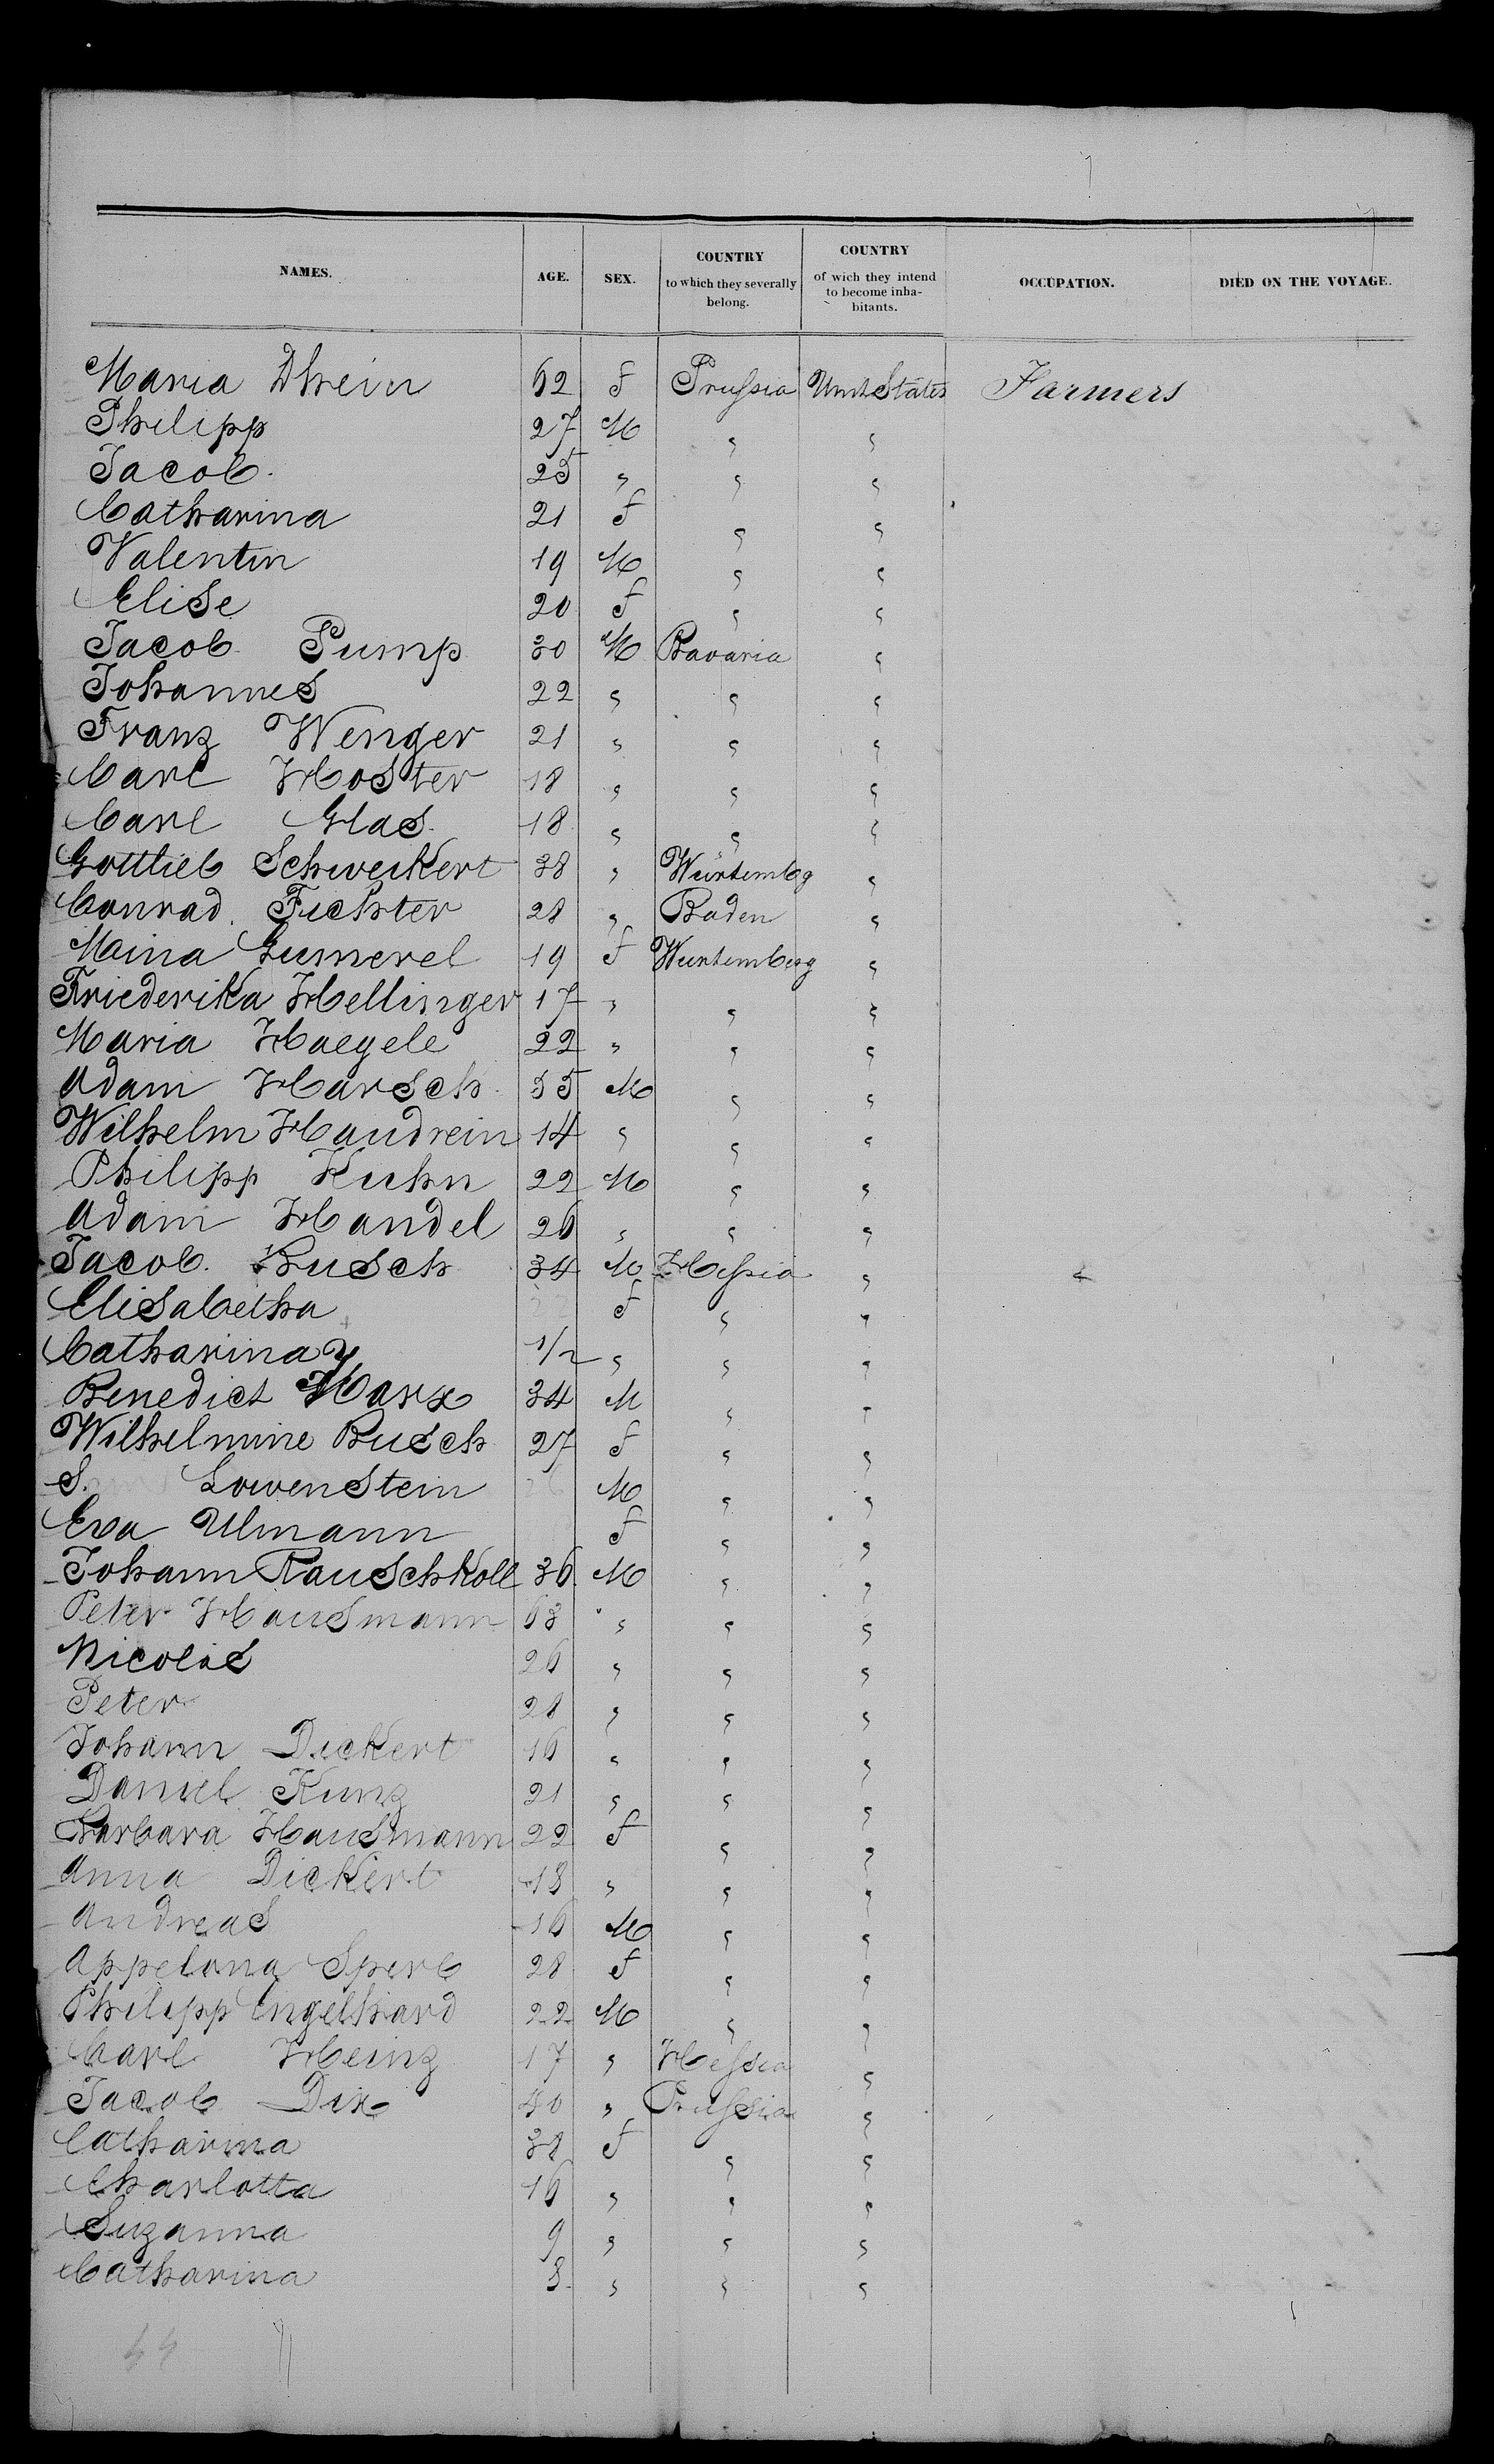 NAMES. AGE. SEX. COUNTRY to which they severally belong. COUNTRY of wich they intend to become inhabitants. OCCUPATION. DIED ON THE VOYAGE.
Maria Dhein 62 F Prussia Unit States Farmers
Philipp 27 M " "
Jacob 25 " " "
Catharina 21 F " "
Valentin 19 M " "
Elise 20 F " "
Jacob Pump 30 M Bavaria "
Johannes 22 " " "
Franz Wenger 21 " " "
Carl Hoster 18 " " "
Carl Glas 18 " " "
Gottlieb Schweikert 38 " Würtembg "
Conrad Fichter 28 " Baden "
Maina Gumerel 19 F Wurtemberg "
Friederika Hellinger 17 " " "
Maria Haegele 22 " " "
Adam Harsch 55 M " "
Wilhelm Haudrein 14 " " "
Philipp Kuhn 22 M " "
Adam Handel 26 " " "
Jacob Busch 34 M Hessia "
Elisabetha F " "
Catharina 1/2 " " "
Benedict Marx 34 M " "
Wilhelmine Busch 27 F " "
S. Lowenstein 26 M " "
Eva Ulmann F " "
Johann Rauschkolb 36 M " "
Peter Hausmann 63 " " "
Nicolas 26 " " "
Peter 28 " " "
Johann Dickert 16 " " "
Daniel Kunz 21 " " "
Barbara Hausmann 22 F " "
Anna Dickert 18 " " "
Andreas 16 M " "
Appelona Sperb 28 F " "
Philipp Engelhard 22 M " "
Carl Heinz 17 " Hessia "
Jacob Dix 40 " Prussia "
Catharina 38 F " "
Charlotta 16 " " "
Suzanna 9 " " "
Catharina 8 " " "
44